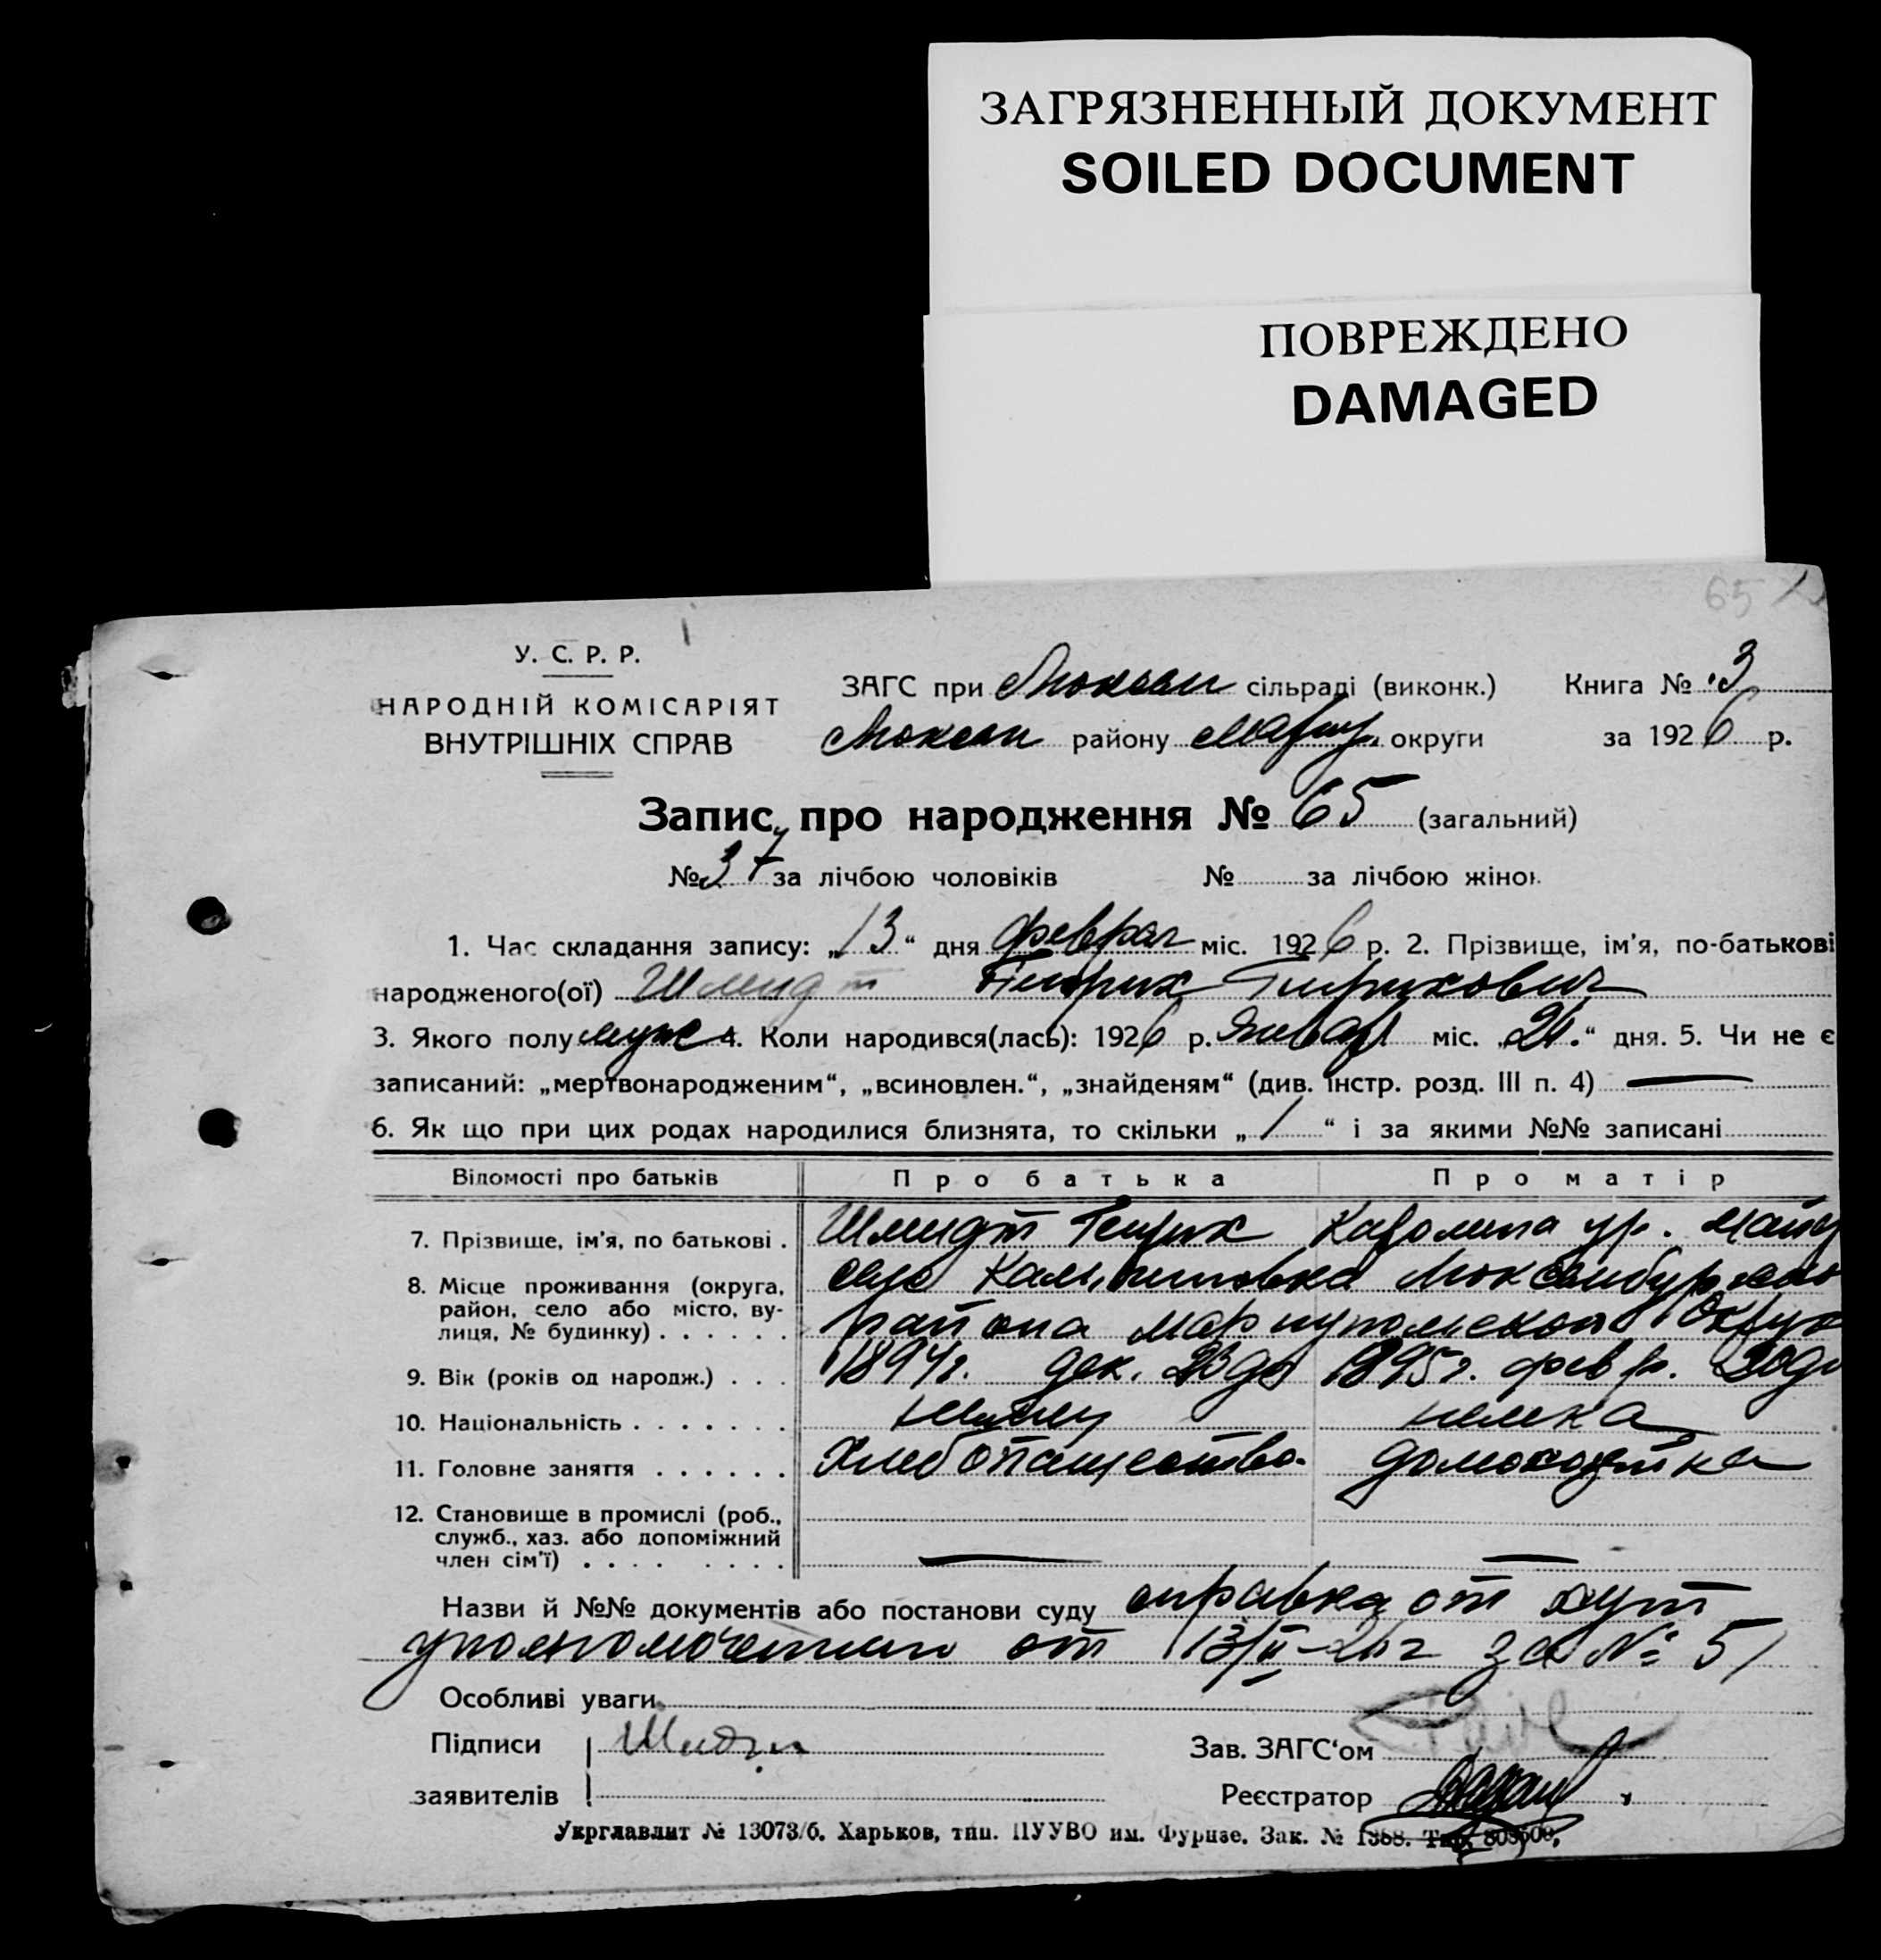 ЗАГРЯЗНЕННЫЙ ДОКУМЕНТ
SOILED DOCUMENT
ПОВРЕЖДЕНО
DAMAGED
65
У. С. Р. Р.
НАРОДНІЙ КОМІСАРІЯТ
ВНУТРІШНІХ СПРАВ
ЗАГС при Люксем сільраді (виконк.) Книга № 3
Люксем району Мариу. округи за 1926 р.
Запис про народження № 65 (загальний)
№ 37 за лічбою чоловіків № за лічбою жінок
1. Час складання запису: „13“ дня феврал міс. 1926 р. 2. Прізвище, ім'я, по-батькові
народженого(ої) Шмидт Генрих Генрихович
3. Якого полу муж 4. Коли народився(лась): 1926 р. Январ міс. „ “ дня. 5. Чи не є
записаний: „мертвонародженим“, „всиновлен.“, „знайденям“ (див. Інстр. розд. III п. 4) —
6. Як що при цих родах народилися близнята, то скільки „1“ і за якими №№ записані
Відомості про батьків Про батька Про матір
7. Прізвище, ім'я, по батькові . Шмидт Генрих Каролина ур.
8. Місце проживання (округа, район, село або місто, вулиця, № будинку) . . . . . . село Люксембургско
района Мариупольского Округ
9. Вік (років од народж.) . . . 1894г. дек. 1895г. февр.
10. Національність . . . . . . . немец немка
11. Головне заняття . . . . . . Хлебопашество. домохозяйка
12. Становище в промислі (роб., служб., хаз. або допоміжний член сім'ї) . . . . . . . . — —
Назви й №№ документів або постанови суду справка от
уполномоченного от 13/II-26г за № 51
Особливі уваги
Підписи Шмидт Зав. ЗАГС'ом
заявителів Реєстратор
Укрглавлит № 13073/б. Харьков, тип. ПУУВО им. Фрунзе. Зак. № 1368.